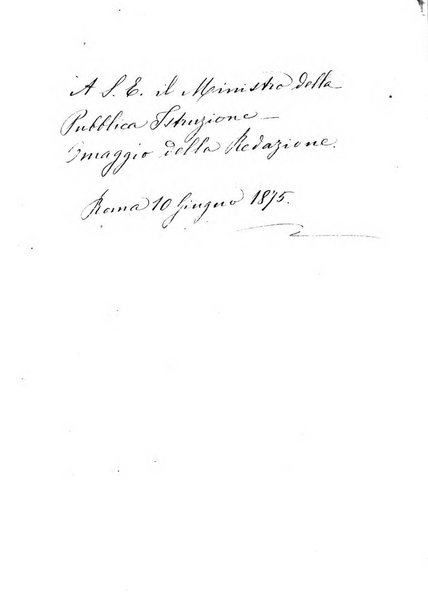 A S. E. il Ministro della
Pubblica Istruzione —
Omaggio della Redazione.
Roma 10 Giugno 1875.